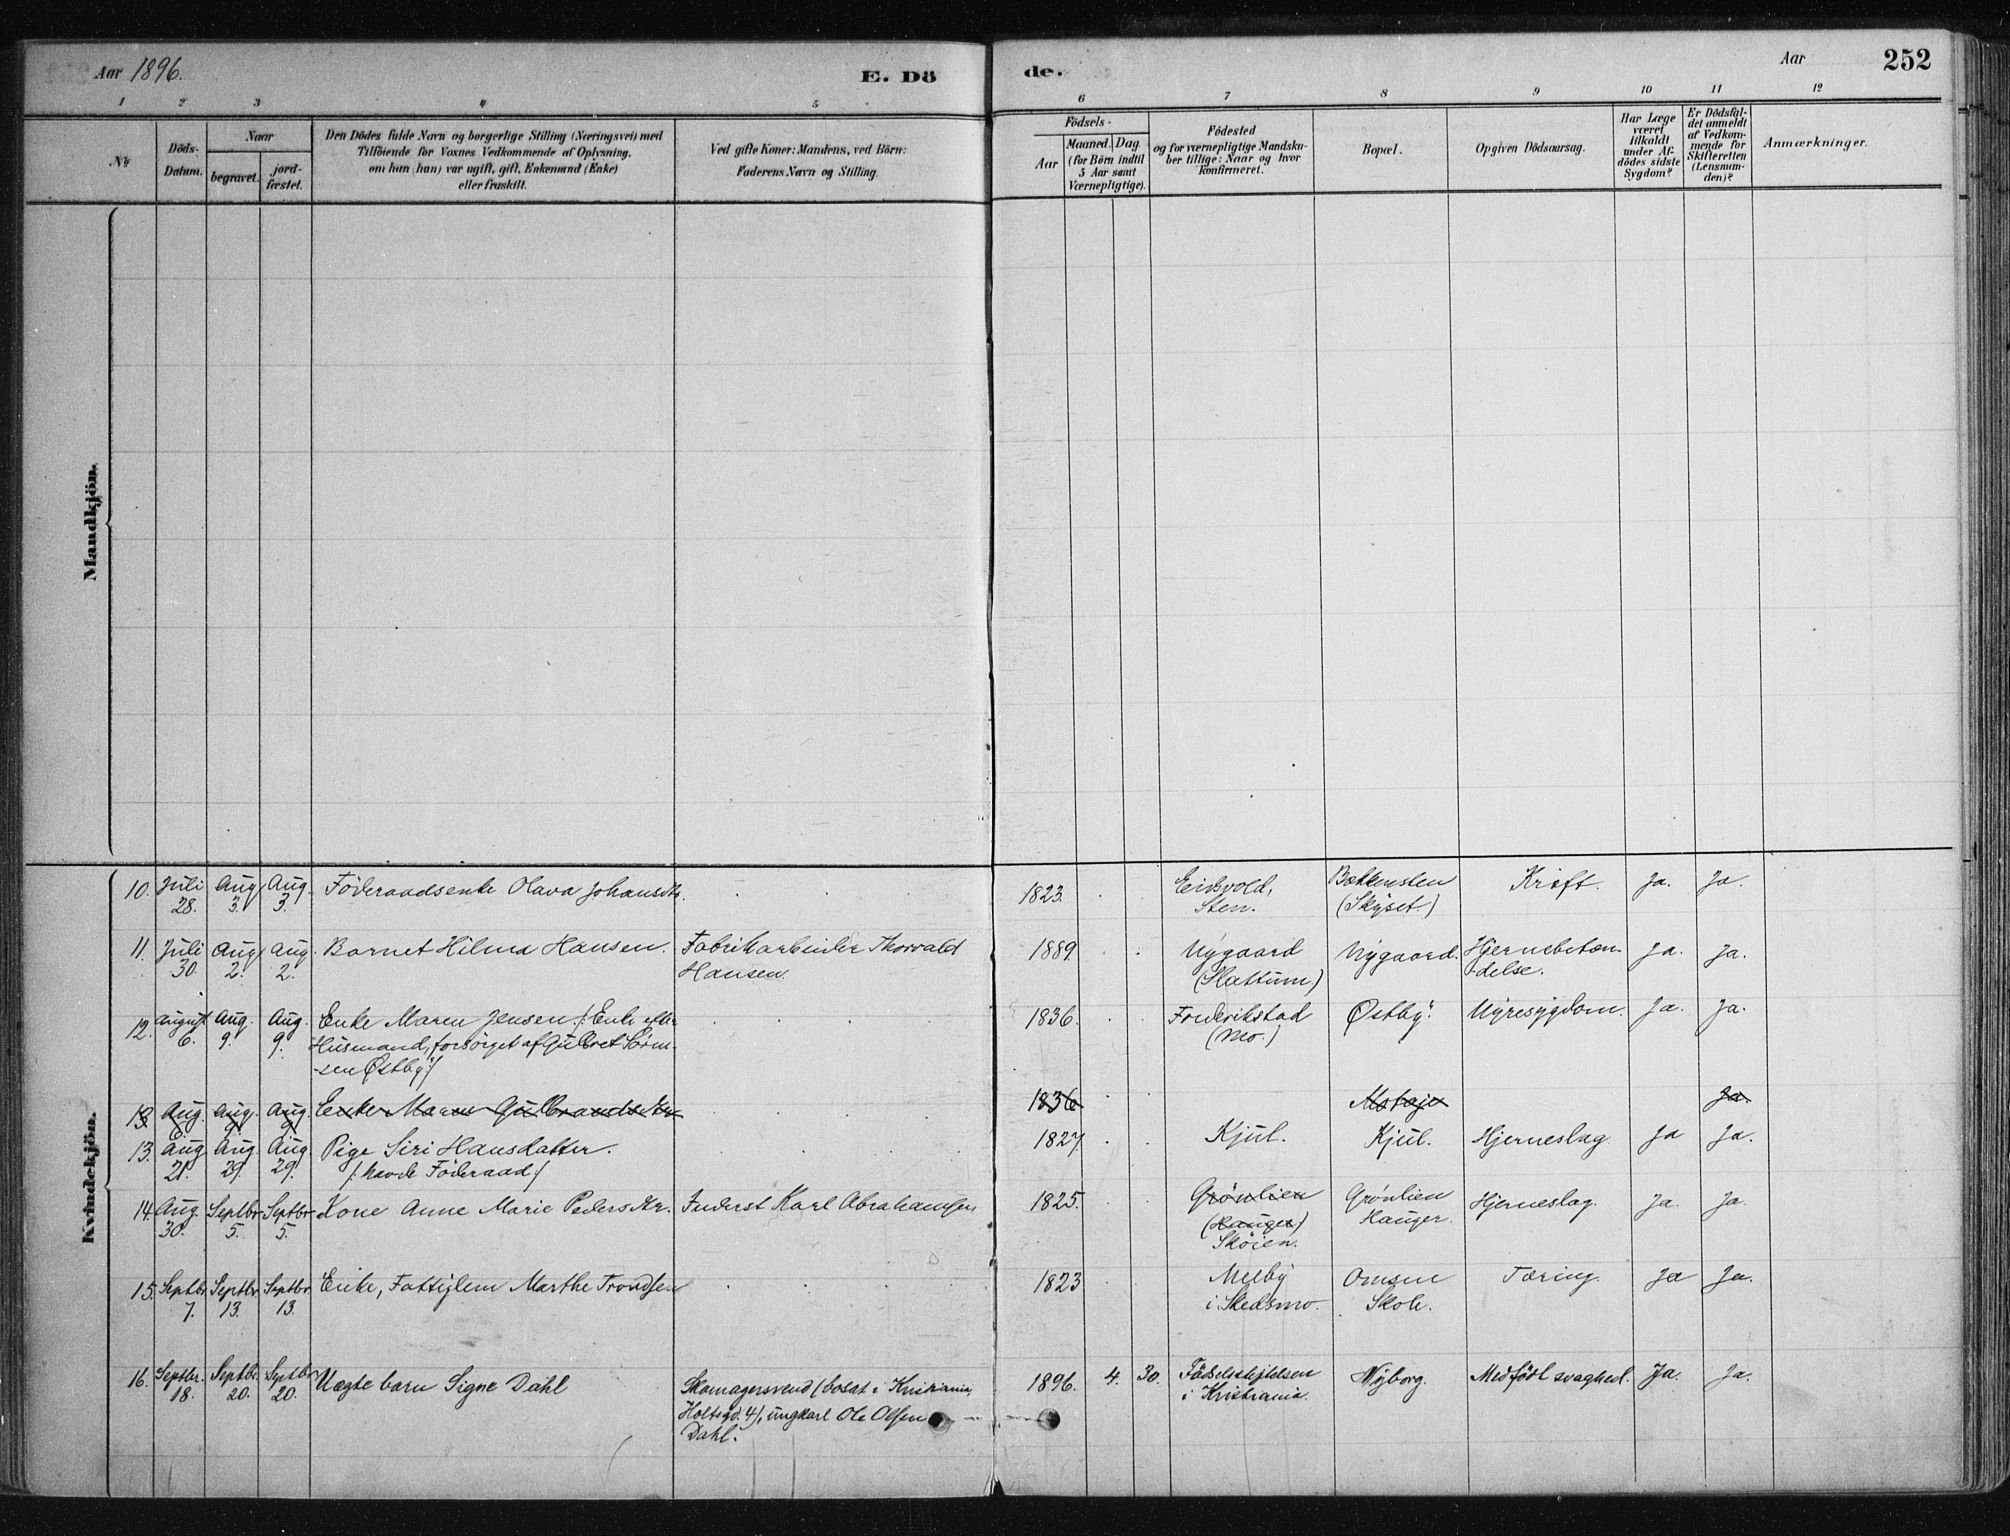 Aar 1896.
E. Dö
de.
Aar
252
1 2 3 4 5 6 7 8 9 10 11 12
№
Döds-Datum.
Naar
begravet.
jord-fæstet.
Den Dödes fulde Navn og borgerlige Stilling (Næringsvei) med
Tilföiende for Voxnes Vedkommende af Oplysning,
om han (hun) var ugift, gift, Enkemand (Enke)
eller fraskilt.
Ved gifte Koner: Mandens, ved Börn:
Faderens Navn og Stilling.
Födsels-
Aar
Maaned. Dag
(for Börn indtil
5 Aar samt
Værnepligtige).
Födested
og for værnepligtige Mandska-
ber tillige: Naar og hvor
konfirmeret.
Bopæl.
Opgiven Dödsaarsag.
Har Læge
været
tilkaldt
under Af-
dödes sidste
Sygdom?
Er Dödsfal-
det anmeldt
af Vedkom-
mende for
Skifteretten
(Lensman-
den)?
Anmærkninger.
Mandkjön.
Kvindekjön.
10. Juli Aug. Aug. Føderaadsenke Olava Johansdtr. 1823. Eidsvold, Bækkensten Kræft. Ja. Ja.
28. 3. 3. Sten. (Skyset.)
11. Juli Aug. Aug. Barnet Hilma Hansen. Fabrikarbeider Thorvald 1889 Nygaard Nygaard. Hjernebetæn- Ja. Ja.
30. 2. 2. Hansen. (Slattum) delse.
12. August Aug. Aug. Enke Maren Jensen. (: Enke efter 1836. Frederikstad Østby. Nyresygdom. Ja. Ja.
6. 9. 9. Husmand, forsørget af (Mo.)
Østby :)
13 Aug. Aug. Aug. Enke Maren Gulbrandsdtr. 1836 Ja.
13. Aug. Aug. Aug. Pige Siri Hansdatter. 1827. Kjul. Kjul. Hjerneslag Ja Ja.
21. 29. 29. (: havde Föderaad :)
14. Aug. Septbr. Septbr. Kone Anne Marie Pedersdtr. Inderst Karl Abrahamsen 1825. Grønlien Grønlien Hjerneslag. Ja. Ja.
30. 5. 5. (Hauger) Hauger.
Skøien.
15. Septbr. Septbr. Septbr. Enke, Fattiglem Marthe Trondsen 1823 Melby Omsen Tæring. Ja Ja.
7. 13. 13. i Skedsmo. Skole.
16. Septbr. Septbr. Septbr. Uægte barn Signe Dahl Skomagersvend (bosat i Kristiania, 1896. 4. 30. Fødselsstiftelsen Nyborg. Medfødt svaghed. Ja. Ja.
18. 20. 20. Holtsgd. 4), ungkarl Ole Olsen i Kristiania.
Dahl.